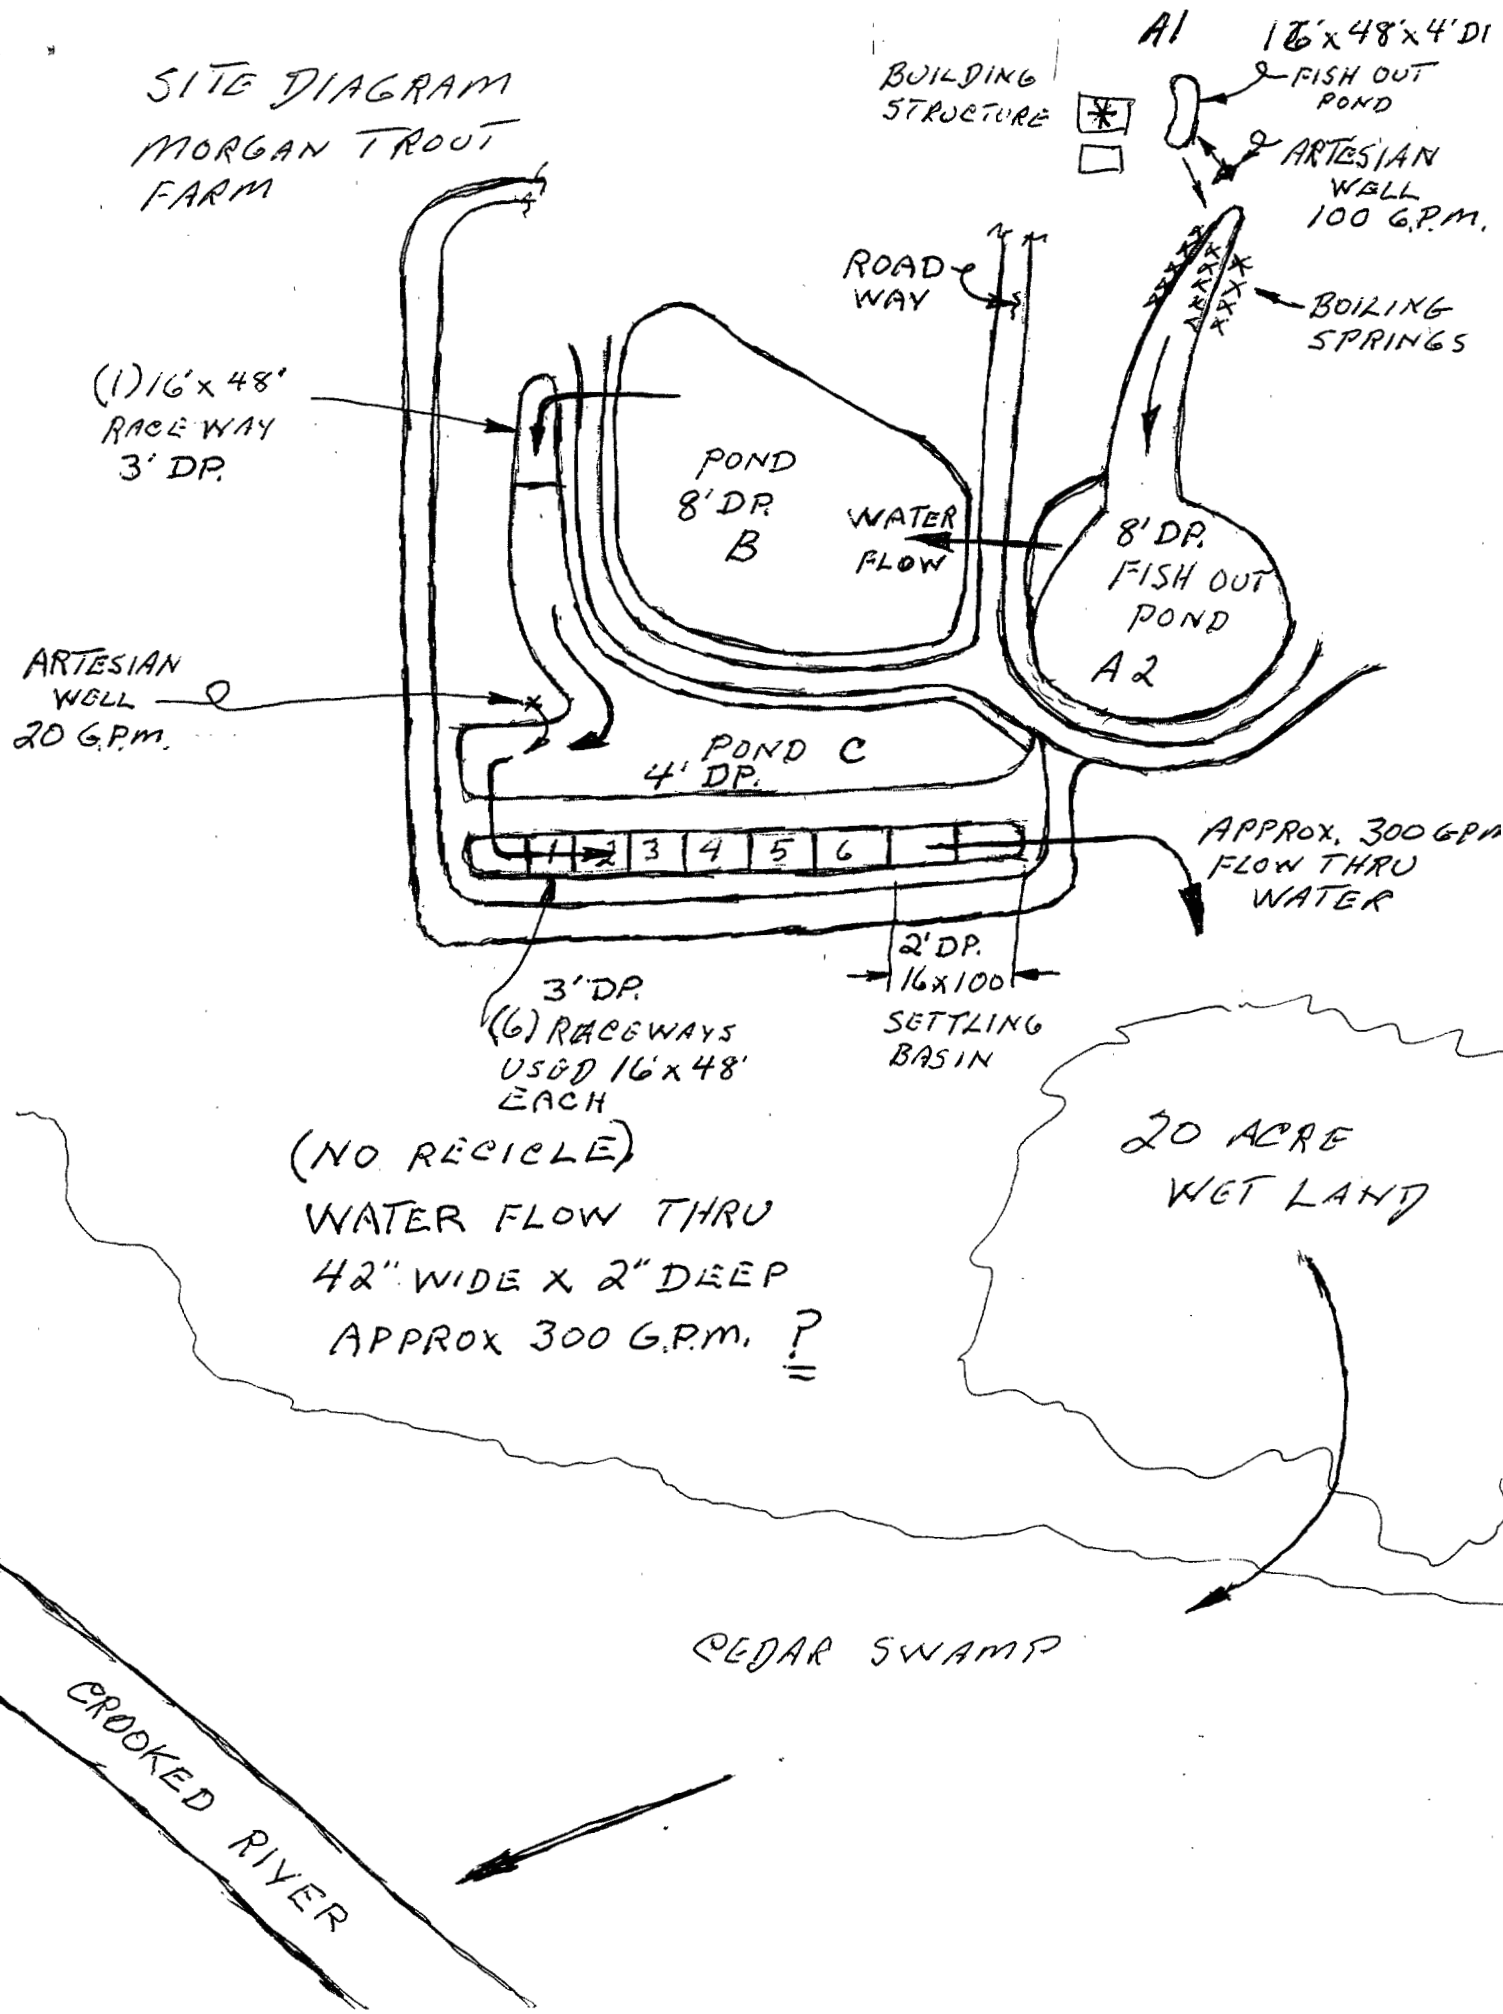 SITE DIAGRAM
MORGAN TROUT
FARM
A1
16'x48'x4'
FISH OUT
POND
BUILDING
STRUCTURE
ARTESIAN
WELL
100 G.P.M.
ROAD
WAY
BOILING
SPRINGS
(1) 16'x48'
RACE WAY
3' DP.
POND
8' DP.
B
WATER
FLOW
8' DP.
FISH OUT
POND
A2
ARTESIAN
WELL
20 G.P.M.
POND C
4' DP.
1 2 3 4 5 6
APPROX. 300 GPM
FLOW THRU
WATER
2' DP.
16x100
SETTLING
BASIN
3' DP.
(6) RACEWAYS
USED 16'x48'
EACH
(NO RECICLE)
WATER FLOW THRU
42" WIDE X 2" DEEP
APPROX 300 G.P.M. ?
20 ACRE
WET LAND
CEDAR SWAMP
CROOKED RIVER